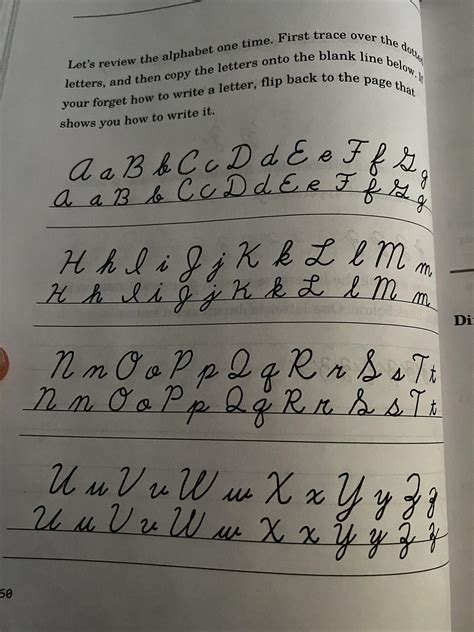 Let's review the alphabet one time. First trace over the dotted
letters, and then copy the letters onto the blank line below. If
your forget how to write a letter, flip back to the page that
shows you how to write it.
A a B b C c D d E e F f G g
A a B b C c D d E e F f G g
H h I i J j K k L l M m
H h I i J j K k L l M m
N n O o P p Q q R r S s T t
N n O o P p Q q R r S s T t
U u V v W w X x Y y Z z
U u V v W w X x Y y Z z
50
Di